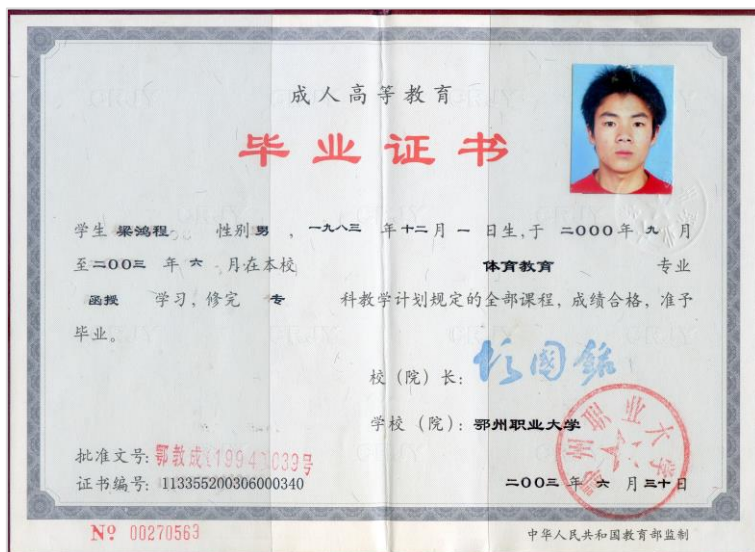 成人高等教育
毕业证书
学生 梁鸿程 性别 男 , 一九八三 年 十二 月 一 日生, 于 二000 年 九 月
至 二00三 年 六 月在本校 体育教育 专业
函授 学习, 修完 专 科教学计划规定的全部课程, 成绩合格, 准予
毕业。
校（院）长:
学校（院）: 鄂州职业大学
鄂州职业大学
批准文号: 鄂教成(1994)039号
证书编号: 113355200306000340
二00三 年 六 月 三十 日
№ 00270563
中华人民共和国教育部监制